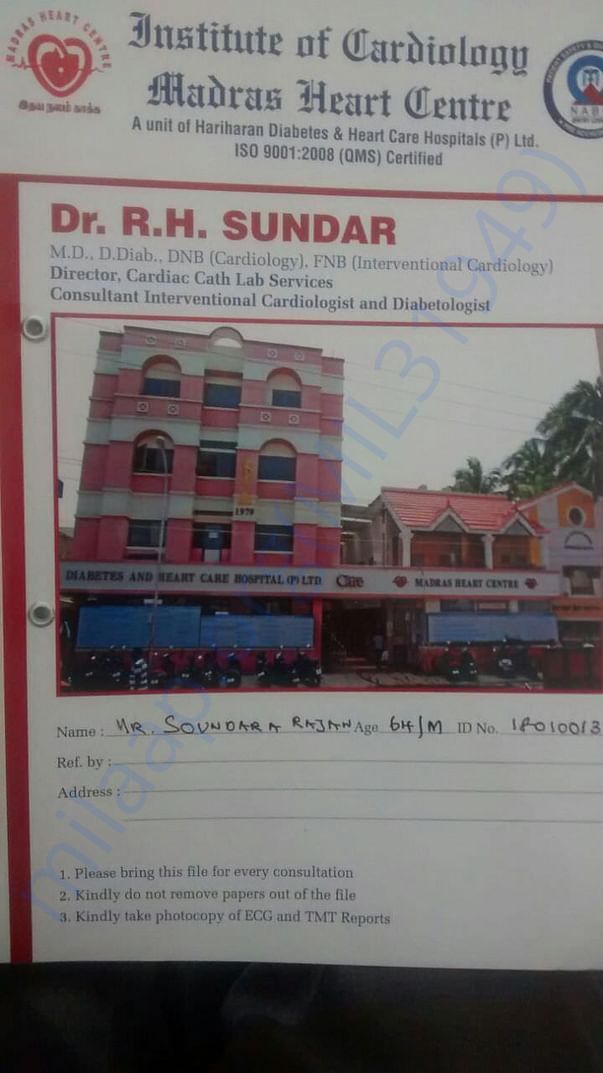 MADRAS HEART CENTRE
இதய நலம் காக்க
Institute of Cardiology
Madras Heart Centre
A unit of Hariharan Diabetes & Heart Care Hospitals (P) Ltd.
ISO 9001:2008 (QMS) Certified
NAB
Dr. R.H. SUNDAR
M.D., D.Diab., DNB (Cardiology), FNB (Interventional Cardiology)
Director, Cardiac Cath Lab Services
Consultant Interventional Cardiologist and Diabetologist
1979
DIABETES AND HEART CARE HOSPITAL (P) LTD. Care MADRAS HEART CENTRE
Name : MR. SOUNDARA RAJAN Age 64/M ID No. 18010013
Ref. by :
Address :
1. Please bring this file for every consultation
2. Kindly do not remove papers out of the file
3. Kindly take photocopy of ECG and TMT Reports